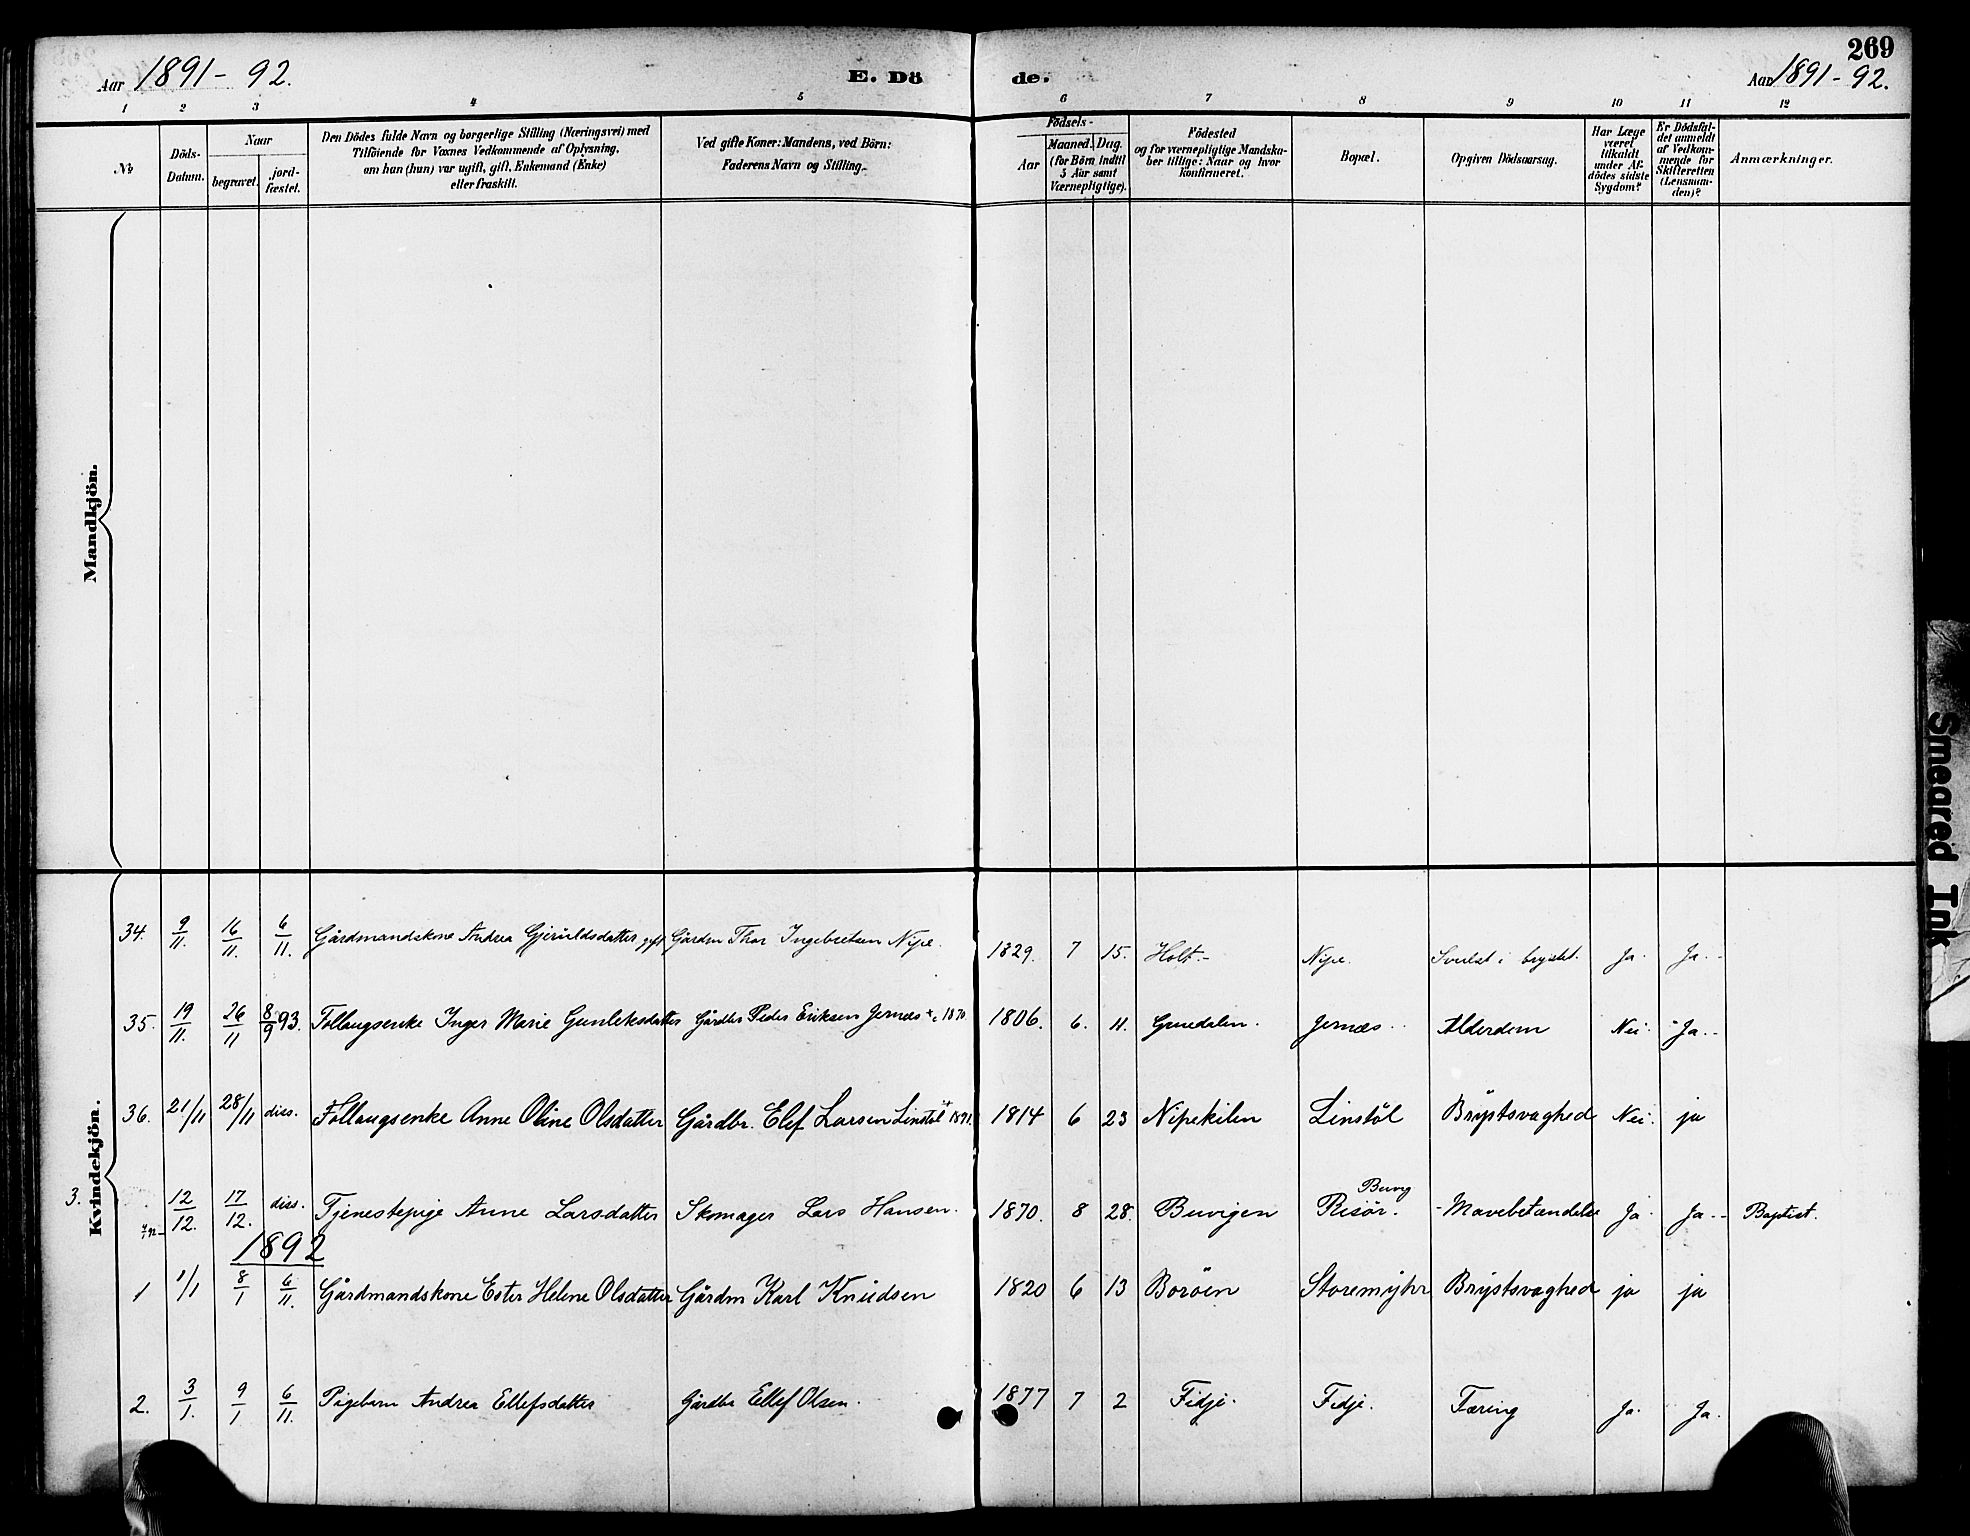 269
Aar 1891-92. E. Dö de. Aar 1891-92.
1 2 3 4 5 6 7 8 9 10 11 12
No
Döds-Datum.
Naar
begravet. jord-fæstet.
Den Dödes fulde Navn og borgerlige Stilling (Næringsvei) med
Tilföiende for Voxnes Vedkommende af Oplysning,
om han (hun) var ugift, gift, Enkemand (Enke)
eller fraskilt.
Ved gifte Koner: Mandens, ved Börn:
Faderens Navn og Stilling.
Födsels-
Aar Maaned. Dag.
(for Börn indtil
5 Aar samt
Værnepligtige).
Födested
og for værnepligtige Mandska-
ber tillige: Naar og hvor
konfirmeret.
Bopæl.
Opgiven Dödsaarsag.
Har Læge
været
tilkaldt
under Af-
dödes sidste
Sygdom?
Er Dödsfal-
det anmeldt
af Vedkom-
mende for
Skifteretten
(Lensman-
den)?
Anmærkninger.
Mandkjön.
Kvindekjön.
34. 9/11. 16/11. 6/11. Gårdmandskone Andrea Gjeruldsdatter gift Gårdm Thor Ingebretsen Nipe. 1829. 7 15. Holt.- Nipe. Svulst i brystet. Ja. Ja.
35. 19/11. 26/11 8/9 93. Follaugsenke Inger Marie Gunleksdatter Gårdbr Peder Eriksen Jernæs + 1870. 1806. 6. 11. Jernæs. Alderdom Nei. Ja.
36. 21/11 28/11 diss. Follaugsenke Anne Oline Olsdatter Gårdbr. Elef Larsen Linstöl + 1891. 1814 6 23 Nipekilen Linstöl Brÿstsvaghed Nei. ja
3. 12/12. 17/12. diss. Tjenestepige Anne Larsdatter Skomager Lars Hansen. 1870. 8 28. Buvigen Buvig Risör. Mavebetændelse Ja Ja Baptist.
1892
1 1/1 8/1 6/11. Gårdmandskone Ester Helene Olsdatter Gårdm Karl Knudsen 1820 6 13 Boröen Storemÿhr Brÿstsvaghed ja ja
2. 3/1. 9/1 6/11. Pigebarn Andrea Ellefsdatter Gårdbr Ellef Olsen. 1877 7 2 Fidje. Fidje. Tæring Ja. Ja.
Smeared Ink